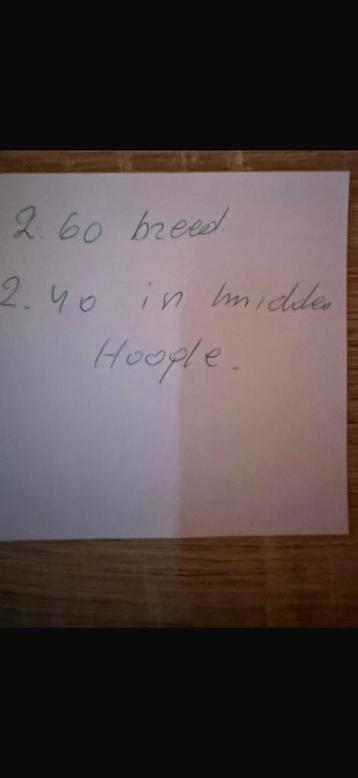 2.60 breed.
2.40 in midden
Hoogte.